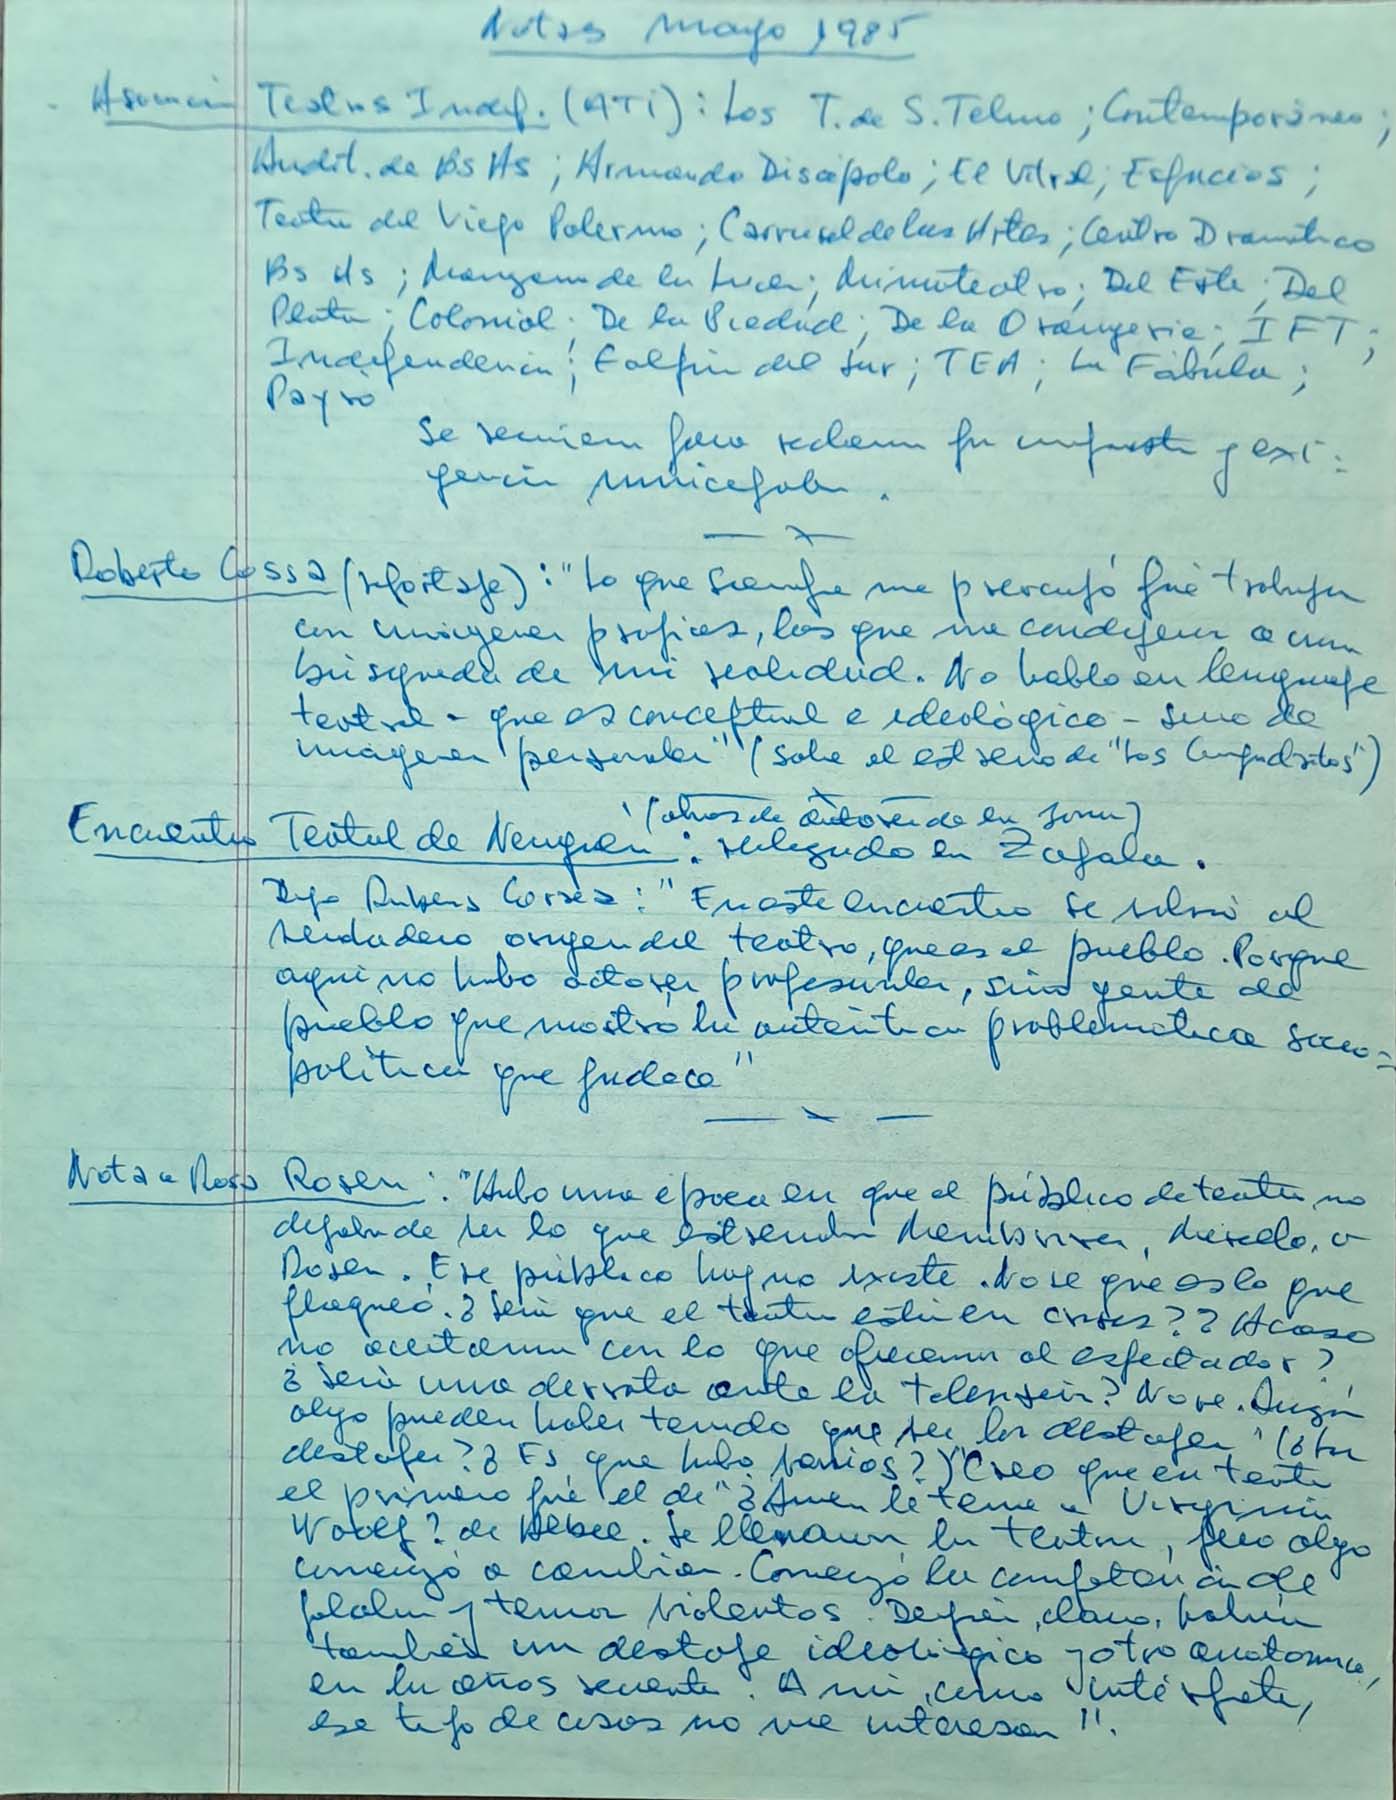 Notas Mayo 1985
Teatros Indep. (ATI): Los T. de S. Telmo; Contemporáneo;
Audit. de Bs As; Armando Discépolo; El Vitral; Espacios;
Teatro del Viejo Palermo; Carrusel de las Artes; Centro Dramático
Bs As; Manzana de las Luces; Mimoteatro; Del Este; Del
Plata; Colonial; De la Piedad; De la Orangerie; IFT;
Independencia; Galpón del Sur; TEA; La Fábula;
Payró
Se reunieron para reclamar por impuestos y exi-
gencias municipales.
Roberto Cossa (reportaje): "Lo que siempre me preocupó fué trabajar
con imágenes propias, las que me condujeran a una
búsqueda de mi realidad. No hablo en lenguaje
teatral - que es conceptual e ideológico - sino de
imágenes personales" (sobre el estreno de "Los Compadritos")
(obras de autores de la zona)
Encuentro Teatral de Neuquén: realizado en Zapala.
Dijo Rubens Correa: "En este encuentro se volvió al
verdadero origen del teatro, que es el pueblo. Porque
aquí no hubo actores profesionales, sino gente de
pueblo que mostró la auténtica problemática socio-
política que padece"
Nota a Rosa Rosen: "Hubo una época en que el público de teatro no
dejaba de ver lo que estrenaba Membrives, Merello, o
Rosen. Ese público hoy no existe. No se que es lo que
flaqueó. ¿Será que el teatro está en crisis? ¿Acaso
no acertamos con lo que ofrecemos al espectador?
¿Será una derrota ante la televisión? No se. Quizás
algo pueden haber tenido que ver los destapes" (¿Los
destapes? ¿Es que hubo varios?) "Creo que en teatro
el primero fué el de "¿Quien le teme a Virginia
Woolf? de Albee. Se llenaron los teatros, pero algo
comenzó a cambiar. Comenzó la competencia de
palabras y temas violentos. Después, claro, habría
también un destape ideológico y otro anatómico,
en los años setenta. A mi, como intérprete,
ese tipo de cosas no me interesan".